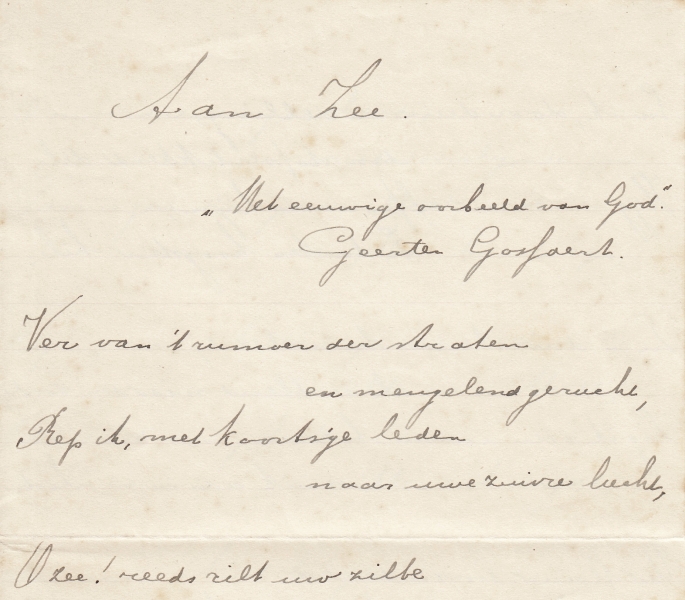 Aan Zee.
„Het eeuwige oorbeeld van God".
Geerten Gossaert.
Ver van 't rumoer der straten
en mengelend gerucht,
Rep ik, met koorts'ge leden
naar uwe zuivre lucht,
O zee! reeds rilt uw zilte